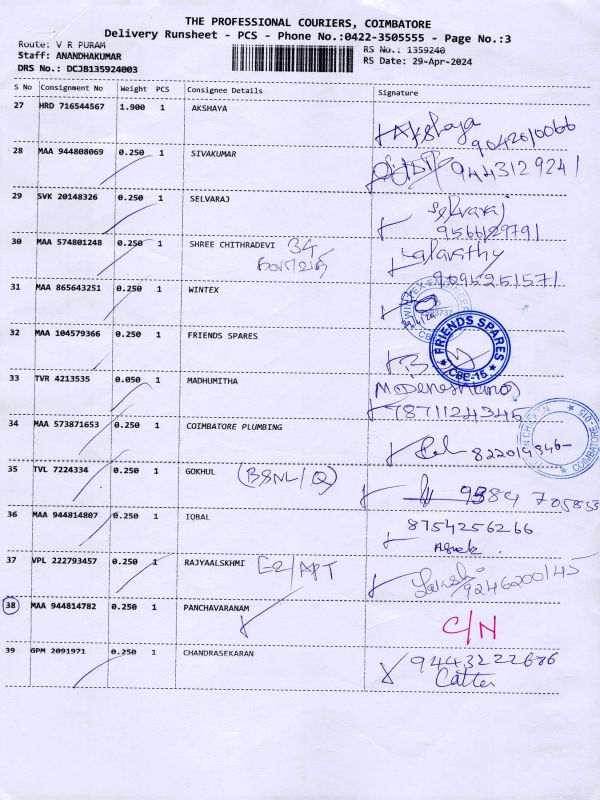 THE PROFESSIONAL COURIERS, COIMBATORE
Delivery Runsheet - PCS - Phone No.:0422-3505555 - Page No.:3
Route: V R PURAM
Staff: ANANDHAKUMAR
DRS No.: DCJB135924003
RS No.: 1359240
RS Date: 29-Apr-2024
S No Consignment No Weight PCS Consignee Details Signature
27 HRD 716544567 1.900 1 AKSHAYA Akshaya
9042610066
28 MAA 944808069 0.250 1 SIVAKUMAR 9443129241
29 SVK 20148326 0.250 1 SELVARAJ Selvaraj
9566129791
30 MAA 574801248 0.250 1 SHREE CHITHRADEVI 34 Kalavathy
9095251571
31 MAA 865643251 0.250 1 WINTEX
32 MAA 104579366 0.250 1 FRIENDS SPARES
FRIENDS SPARES
CBE-15
33 TVR 4213535 0.050 1 MADHUMITHA
7871124345
34 MAA 573871653 0.250 1 COIMBATORE PLUMBING 822019346
35 TVL 7224334 0.250 1 GOKHUL (BSNL/Q) 9384 705853
36 MAA 944814807 0.250 1 IQBAL 8754256266
Asok
37 VPL 222793457 0.250 1 RAJYAALSKHMI E2/APT
9246200145
38 MAA 944814782 0.250 1 PANCHAVARANAM C/N
39 GPM 2091971 0.250 1 CHANDRASEKARAN 9443222686
Catter